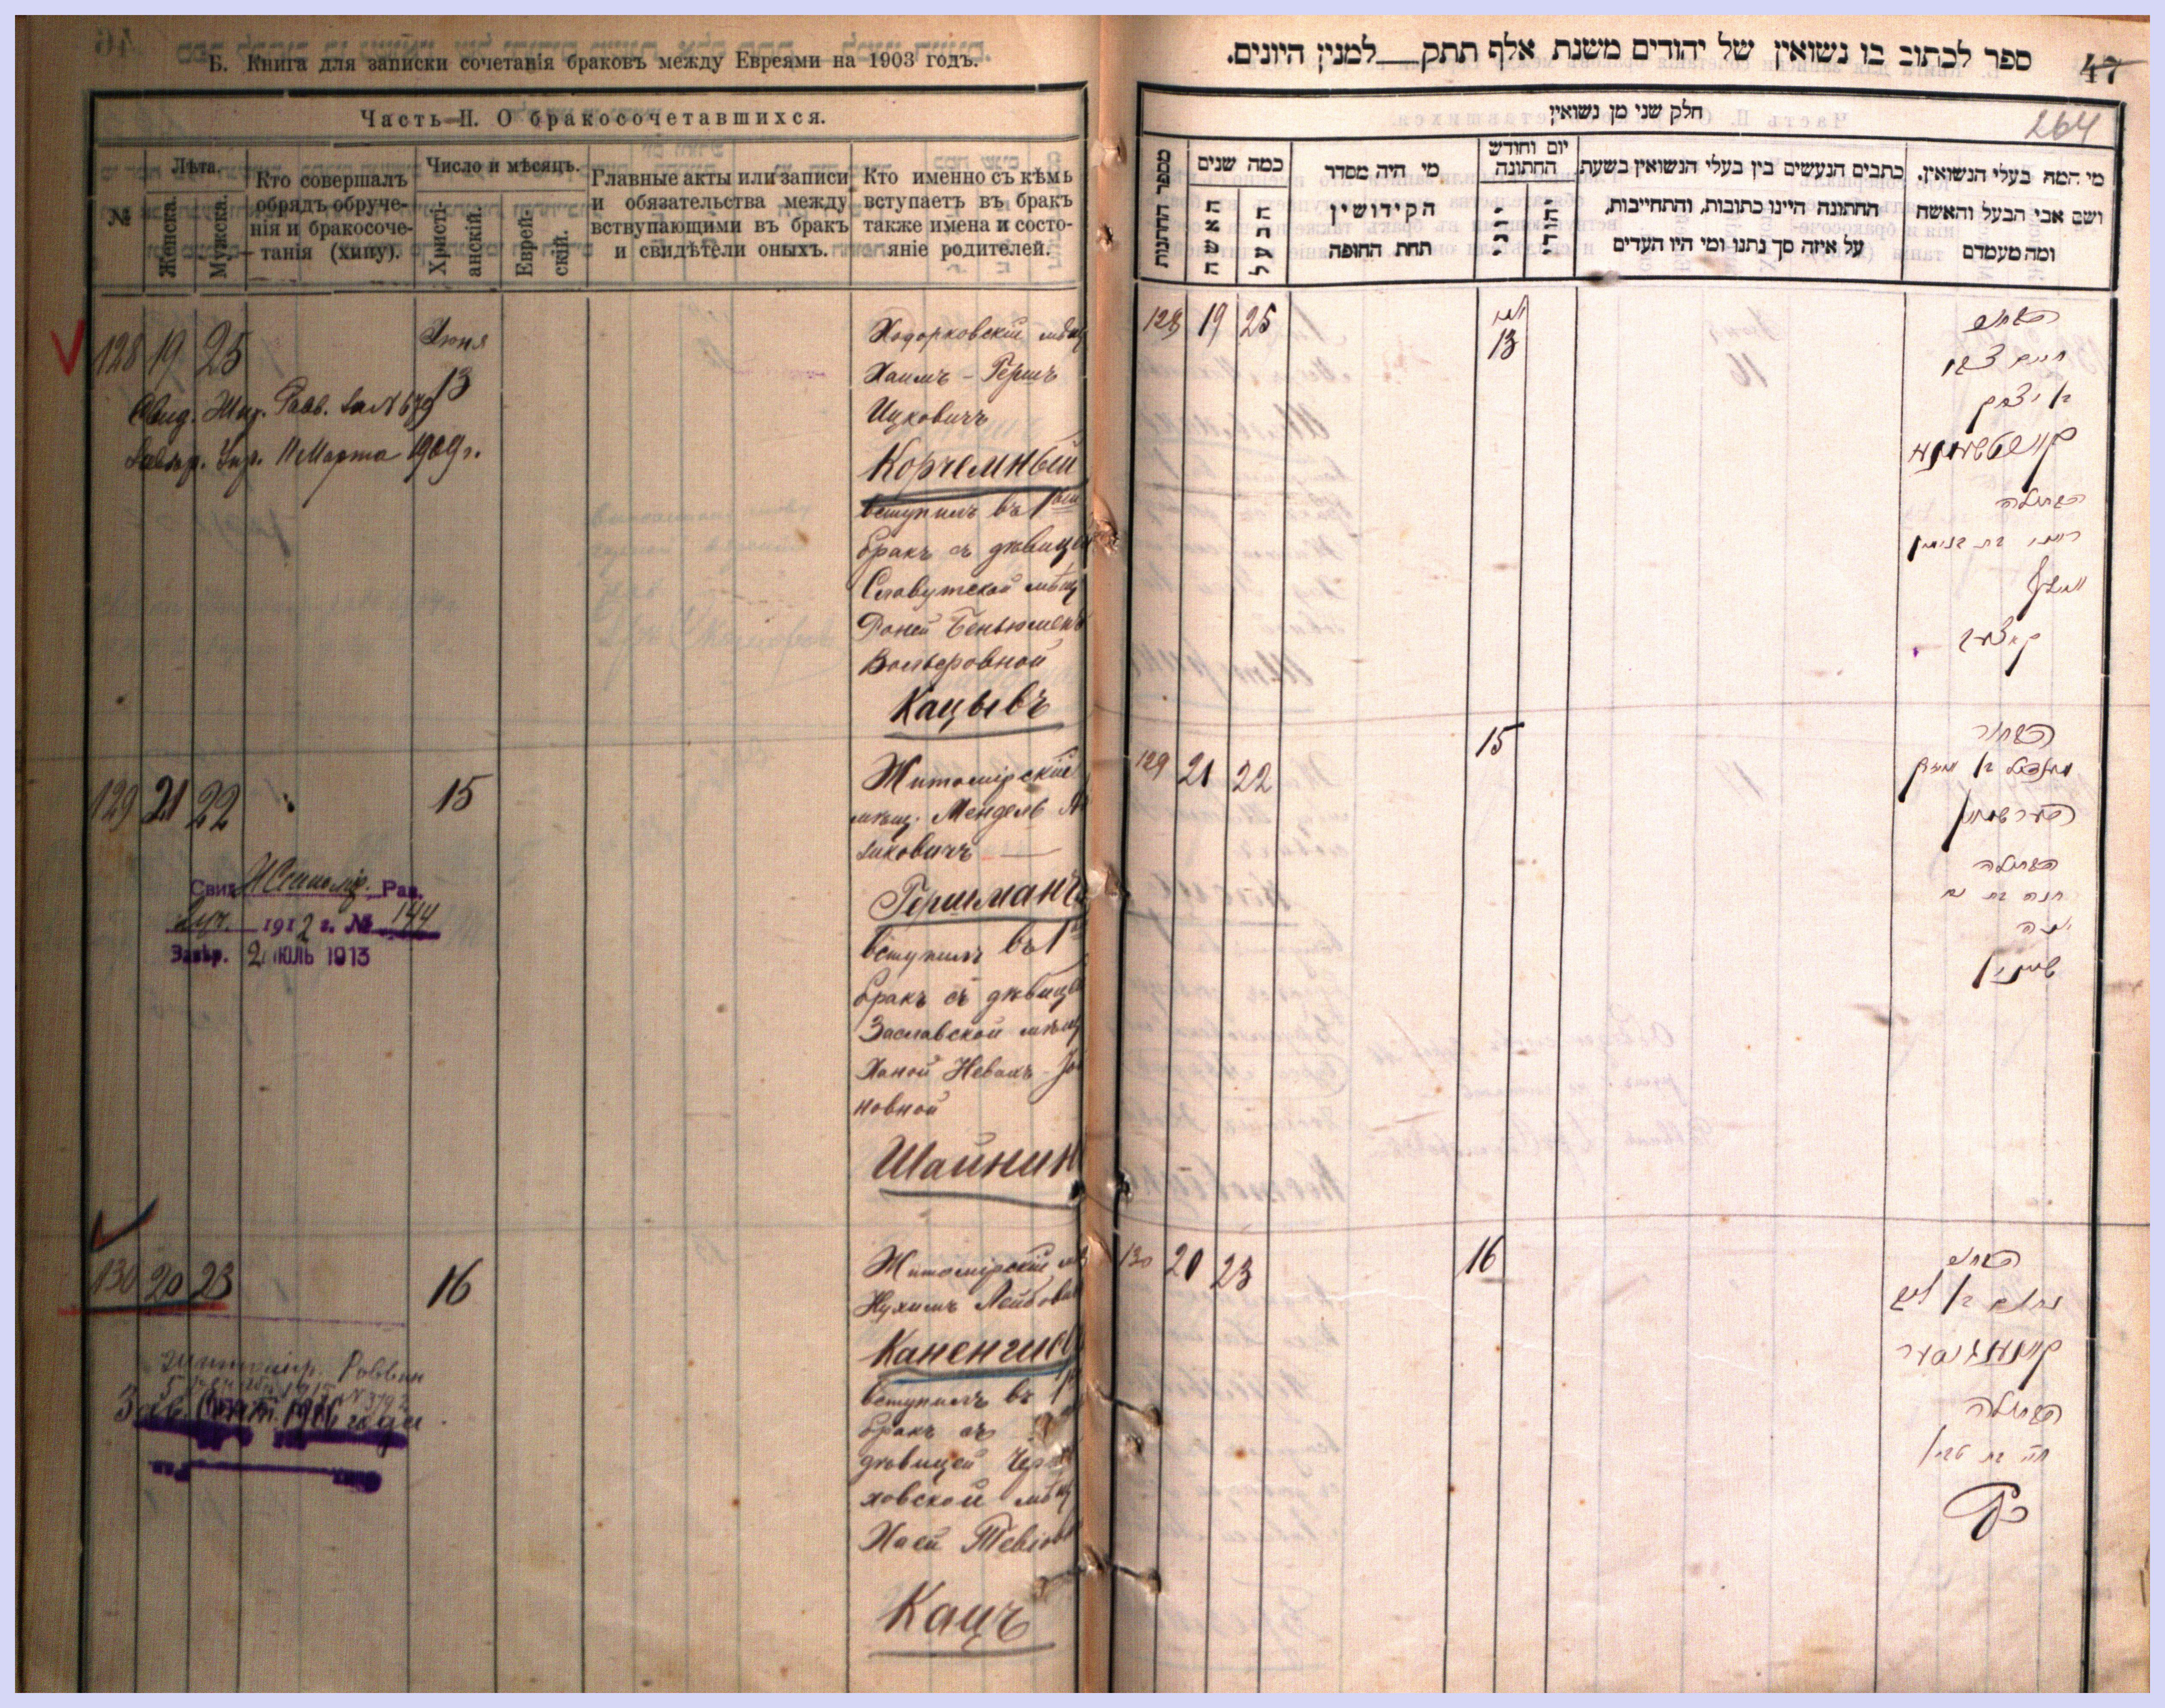 Б. Книга для записки сочетанія браковъ между Евреями на 1903 годъ.
Часть II. О бракосочетавшихся.
№
Лѣта.
Женска.
Мужска.
Кто совершалъ
обрядъ обруче-
нія и бракосоче-
танія (хипу).
Число и мѣсяцъ.
Христі-
анскій.
Еврей-
скій.
Главные акты или записи
и обязательства между
вступающими въ бракъ
и свидѣтели оныхъ.
Кто именно съ кѣмъ
вступаетъ въ бракъ
также имена и состо-
яніе родителей.
128 19 25
Іюня
13
Свид. Жит. Равв. за № 679
11 Марта 1909 г.
Ходорковскій мѣщ
Хаимъ - Гершъ
Ицковичъ
Корчемный
вступилъ въ 1ый
бракъ съ дѣвицей
Славутской мѣщ
Бенъюменъ
Вольфовной
Кацъевъ
129 21 22
15
Свид. Житомір. Рав.
1912 г. № 144
Завѣр. 2 ІЮЛЬ 1913
Житомірскій
мѣщ. Мендель
Гершманъ
вступилъ въ 1
бракъ съ дѣвицей
Заславской мѣщ
Ханой Невахъ
новной
Шайнин
130 20 23
16
Житомір. Раввин
1916 года
Житомірскій
Нухимъ Лейбов
Каненгис
вступилъ въ 1
бракъ съ
дѣвицей Чер
ховской мѣщ
Хаей Тевіов
Кацъ
47
ספר לכתוב בו נשואין של יהודים משנת אלף תתק למנין היונים.
חלק שני מן נשואין
264
מספר החתונות
כמה שנים
האשה
הבעל
מי היה מסדר
הקידושין
תחת החופה
יום וחודש
החתונה
יוני
יהודי
כתבים הנעשים בין בעלי הנשואין בשעת
החתונה היינו כתובות, והתחייבות,
על איזה סך נתנו ומי היו העדים
מי המה בעלי הנשואין,
ושם אבי הבעל והאשה
ומה מעמדם
128 19 25
13
הבחור
חיים צבי
בן יצחק
הבתולה
בת בנימין
וואלף
קאצעב
129 21 22
15
הבחור
הערשמאן
הבתולה
חנה בת נח
יונה
שיינין
130 20 23
16
הבחור
נחום בן ליב
קאנענגיסער
הבתולה
חיה בת טביו
כץ